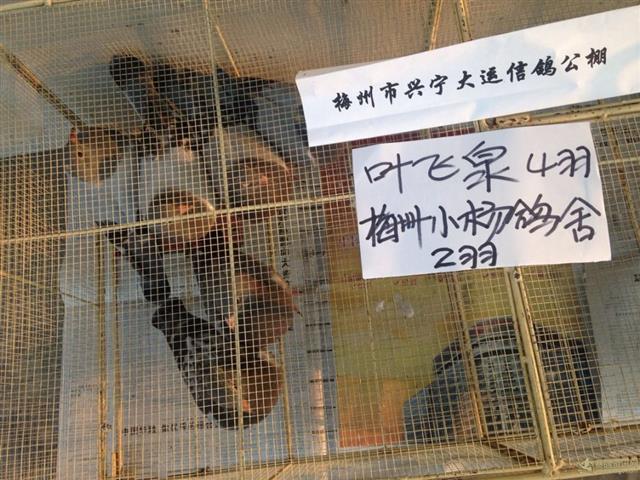 梅州市兴宁大运信鸽公棚
叶飞泉 4羽
梅州小杨鸽舍
2羽